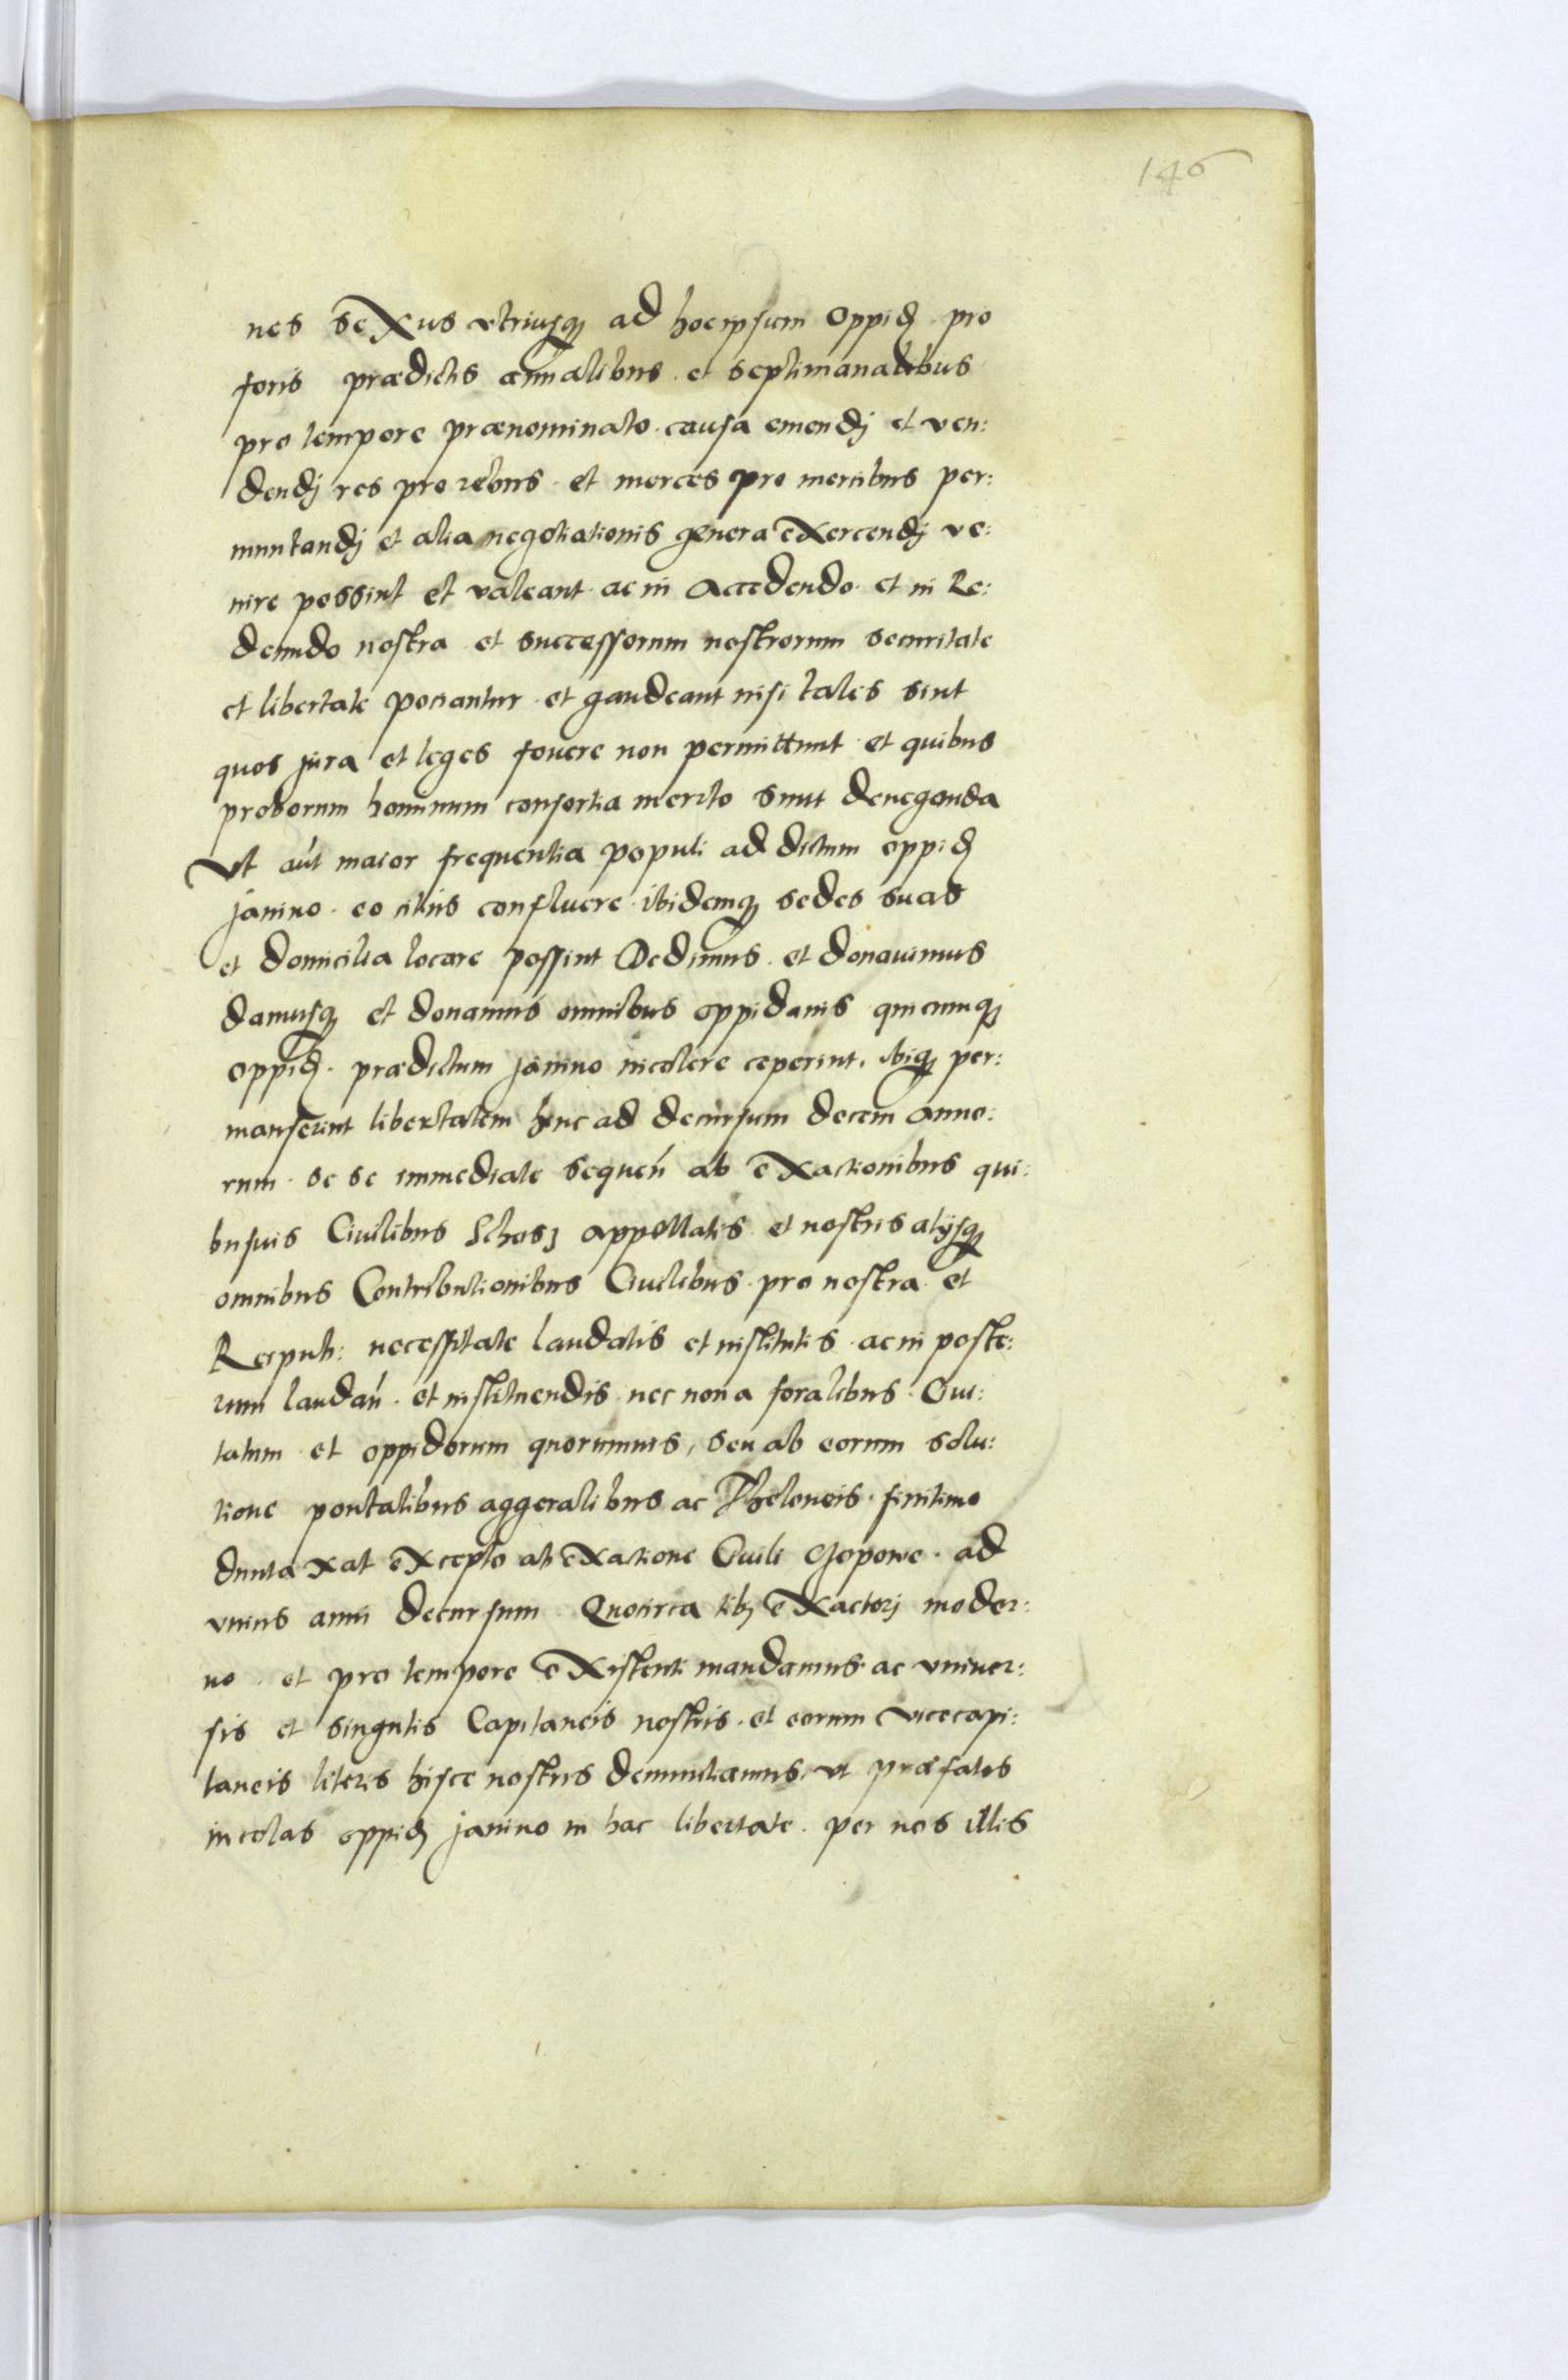 146
nes sexus vtriusq ad hoc ipsum oppid pro
foris prædictis annalibus et septimanalibus
pro tempore prænominato causa emendj et ven:
dendj res pro rebus et merces pro mercibus per:
muntandj et alia negotiationis genera exercendj ve:
nire possint et valeant ac in accedendo et in Re:
deundo nostra et successorum nostrorum securitate
et libertate potiantur et gaudeant nisi tales sint
quos jura et leges fouere non permittunt et quibus
proborum hominum consortia merito sunt deneganda
Vt aut maior frequentia populi ad dictum oppid
janino eo citius confluere ibidemq sedes suas
et domicilia locare possint Dedimus et donauimus
damusq et donamus omnibus oppidanis quicumq
oppid prædictum janino incolere ceperint ibiq per:
manserint libertatem hinc ad decursum decem anno:
rum se se immediate sequen ab exactionibus qui:
busuis Ciuilibus Schosz appellatis et nostris alijsq
omnibus Contributionibus Ciuilibus pro nostra et
Reipub: necessitate laudatis et institutis ac in poste:
rum laudan et instituendis nec non a foralibus Ciui:
tatum et oppidorum quorumuis, seu ab eorum solu:
tione pontalibus aggeralibus ac Theloneis finitimo
duntaxat excepto ab exactione Ciuili Czopowe ad
vnius anni decursum Quocirca tibj exactorj moder:
no et pro tempore existenti mandamus ac vniuer:
sis et singulis Capitaneis nostris et eorum vicecapi:
taneis literis hisce nostris denuntiamus vt præfatos
incolas oppid janino in hac libertate per nos illis